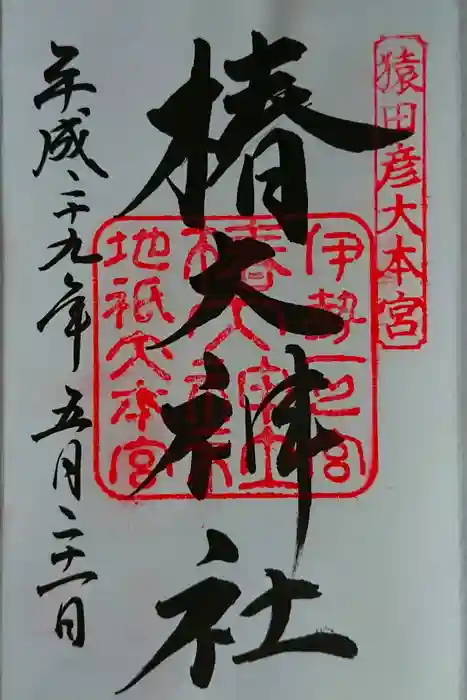 猿田彦大本宮
伊勢一之宮
椿大神社
地祇大本宮
椿大神社
平成二十九年五月二十一日